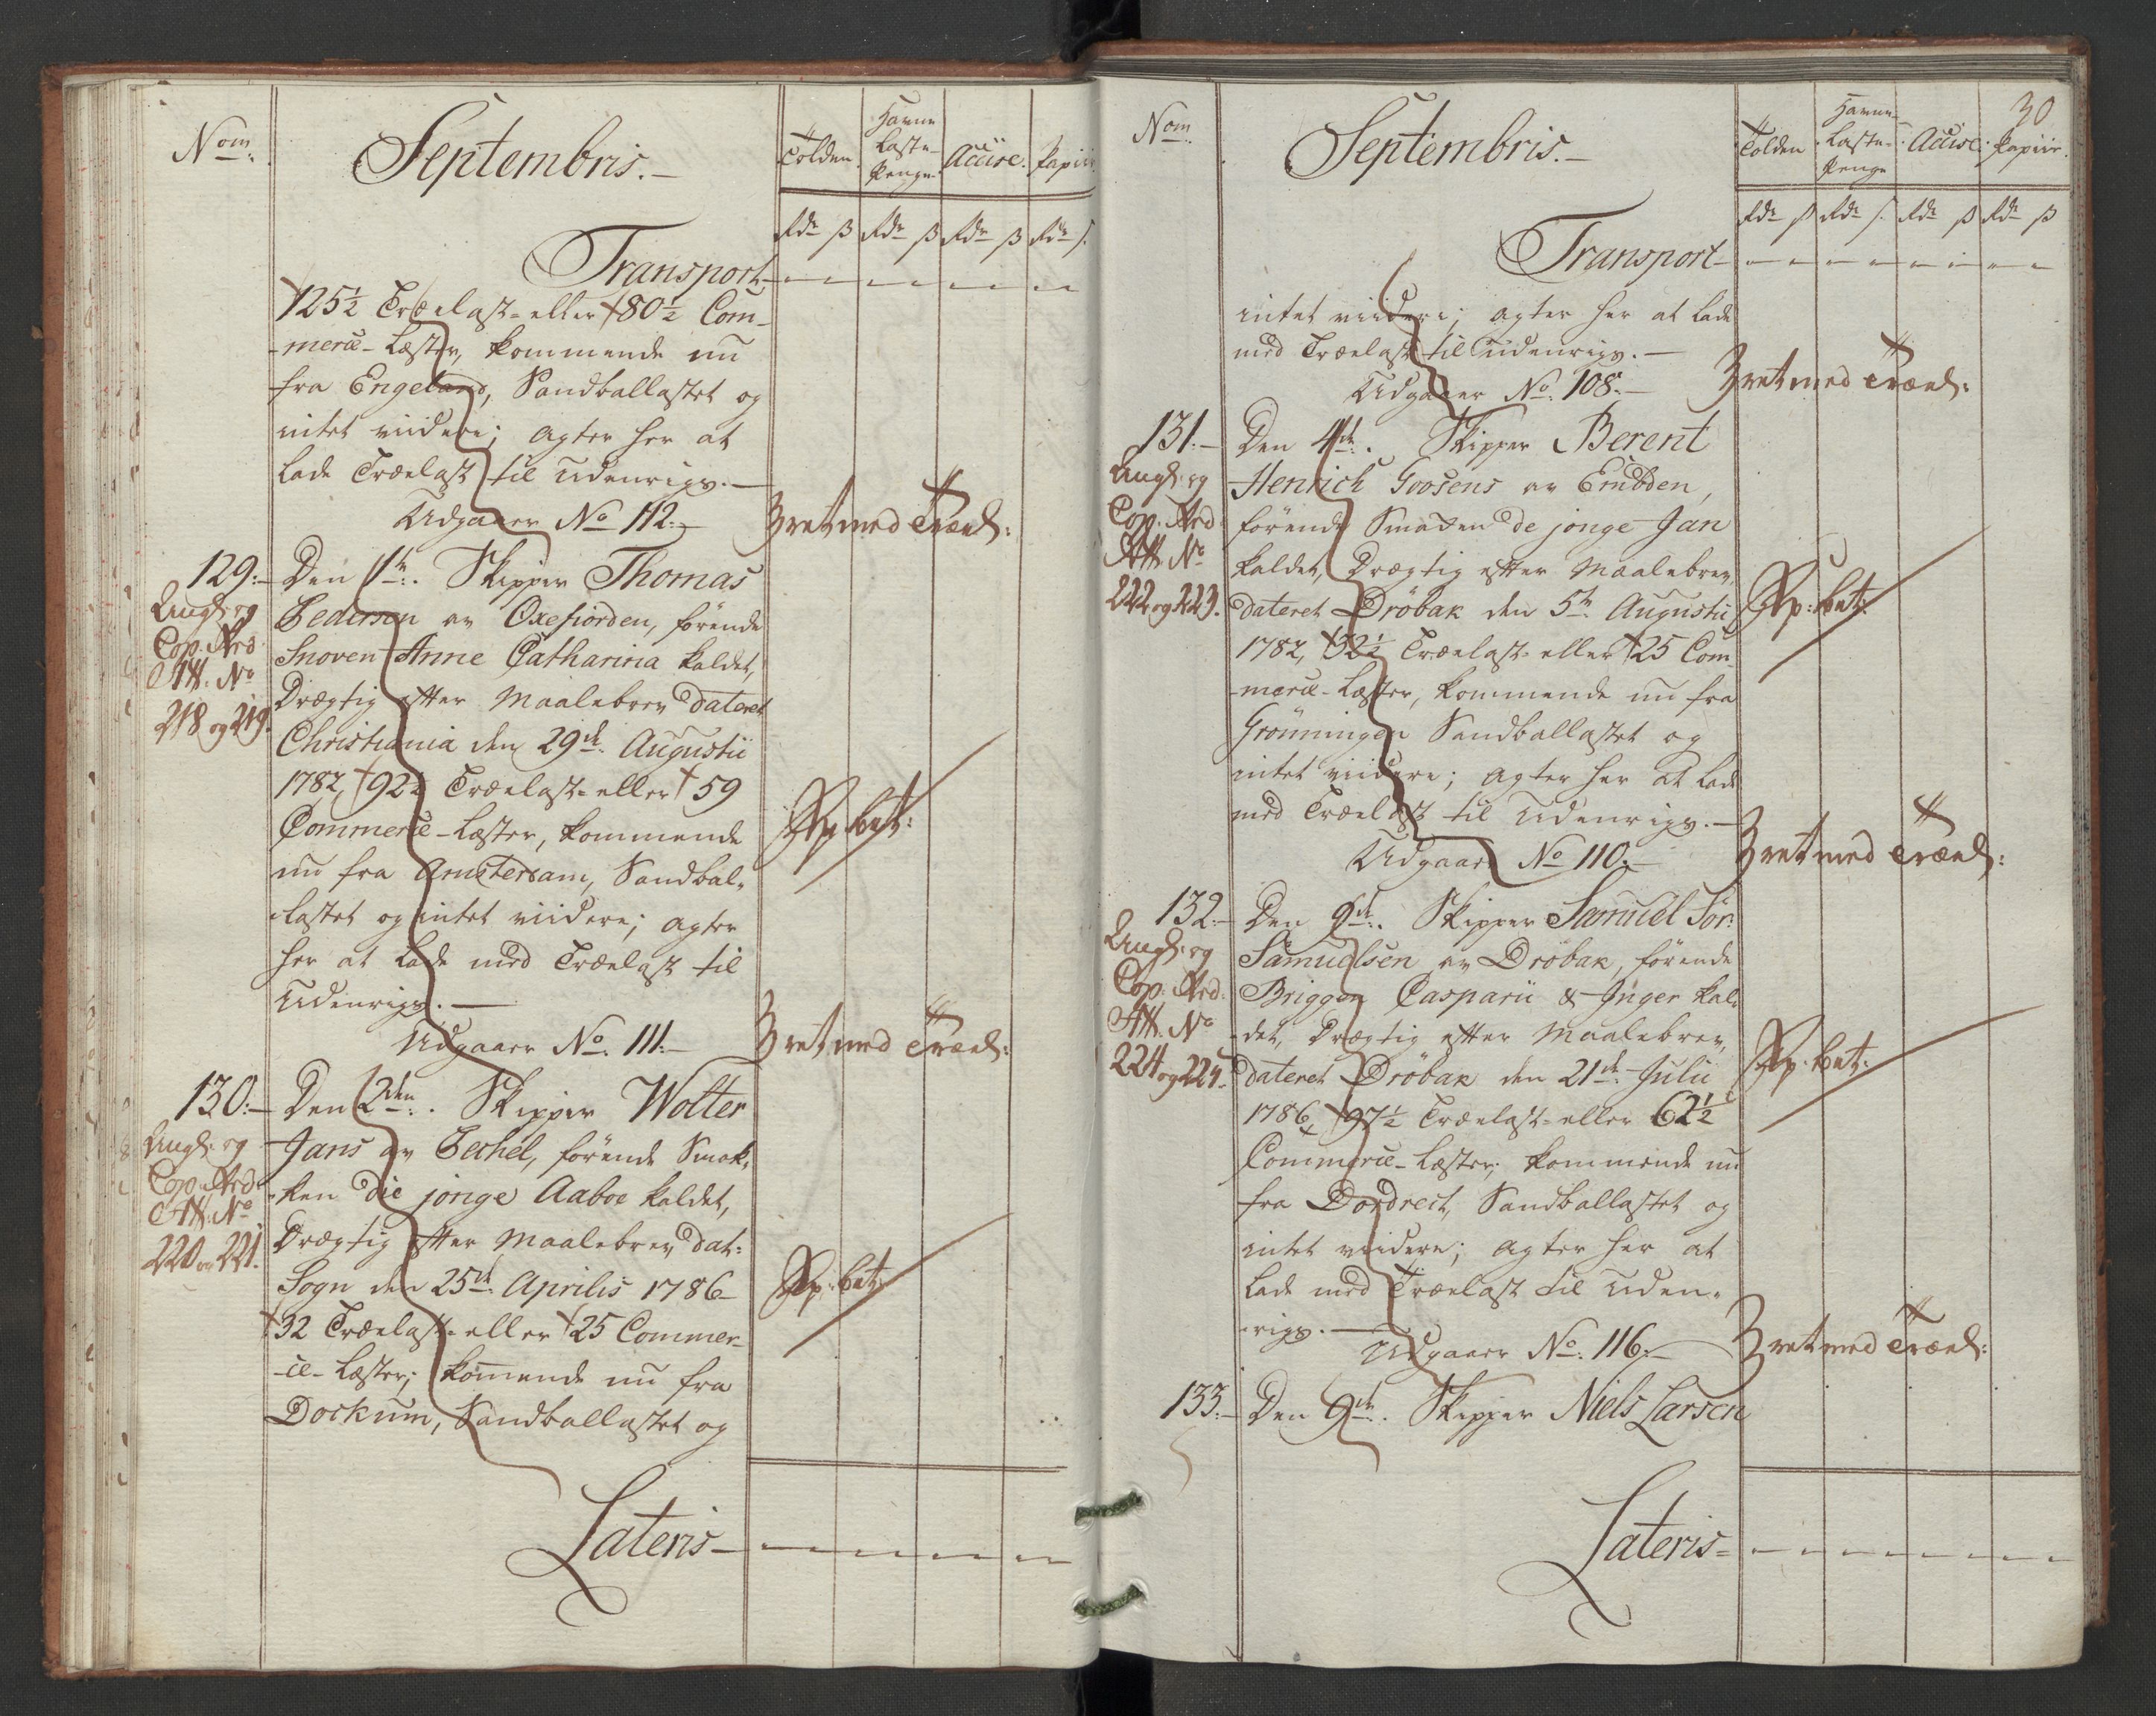 Nom:
Septembris.-
Tolden.
Havne
Laste-
Penge.
Accise.
Papiir.
Rdr ß Rdr ß Rdr ß Rdr ß
Transport
125½ Trælast- eller 80½ Com-
-merce-Læster, kommende nu
fra Engeland, Sandballastet og
intet viidere; agter her at
lade Trælast til Udenrigs.-
Udgaaer No 112.-
3 ret med Træel:
129:- Den 1te. Skipper Thomas
Pedersen av Oxefiorden, förende
Snoven Anne Catharina kaldet,
Drægtig efter Maalebrev dateret
Christiania den 29de Augustii
1782, 92½ Trælast- eller 59
Commerce-Læster, kommende
nu fra Amsterdam, Sandbal-
-lastet og intet viidere; agter
her at lade med Trælast til
Udenrigs.-
Udgaaer No. 111.-
Angb: og
Cop: Ord
Att. No
218 og 219.
Sp: bet:
3 ret med Træel:
130:- Den 2den. Skipper Wolter
Jans av Pechel, förende Smak-
-ken die jonge Aaboe kaldet,
Drægtig efter Maalebrev dat:
Sogn den 25de Aprilis 1786
32 Trælast- eller 25 Commer-
-ce-Læster; kommende nu fra
Dockum, Sandballastet og
Angb: og
Cop: Ord
Att: No
220 og 221.
Sp: bet:
Lateris-
30
Nom
Septembris.-
Tolden
Havne-
Laste-
Penge
Accise.
Papiir.
Rdr ß Rdr ß Rdr ß Rdr ß
Transport-
intet viidere; agter her at lade
med Trælast til udenrigs.-
Udgaaer No. 108.-
3 ret med Træel:
131.- Den 4de. Skipper Berent
Henrich Goosens av Embden,
förende Smakken de jonge Jan
kaldet, Drægtig efter Maalebrev,
dateret Dröbak den 5te Augustii
1782, 32½ Trælast- eller 25 Com-
-merce-Læster, kommende nu fra
Grönningen Sandballastet og
intet viidere; agter her at lade
med Trælast til Udenrigs.-
Udgaaer No 110.-
Angb: og
Cop: Ord
Att. No
222 og 223.
Sp: bet:
3 ret med Træel:
132.- Den 9de. Skipper Samuel Sör:
Samuelsen av Dröbak, förende
Briggen Casparii & Inger kal-
-det, Drægtig efter Maalebrev,
dateret Dröbak den 21de Julii
1786, 97½ Trælast- eller 62½
Commerce-Læster; kommende nu
fra Dordrect, Sandballastet og
intet viidere; agter her at
lade med Trælast til Uden-
-rigs.-
Udgaaer No. 116.-
Angb: og
Cop: Ord:
Att. No
224 og 225.
Sp: bet:
3 ret med Træel:
133.- Den 9de. Skipper Niels Larsen
Lateris-